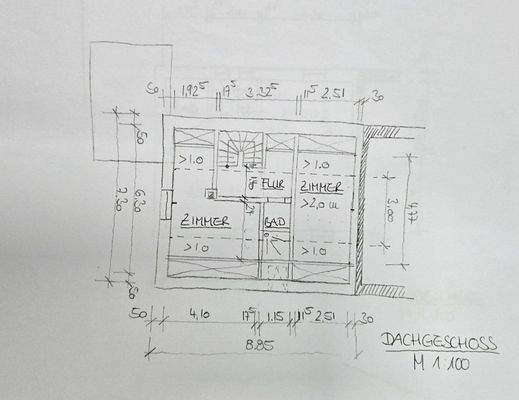 50 1.92⁵ 17⁵ 3.32⁵ 11⁵ 2.51 30
>1.0 >1.0
FLUR ZIMMER
>2,0 m
ZIMMER BAD
>1.0 >1.0
50
7.30 6.30
50
3.00 4.77
50 4.10 17⁵ 1.15 11⁵ 2.51 30
8.85
DACHGESCHOSS
M 1:100